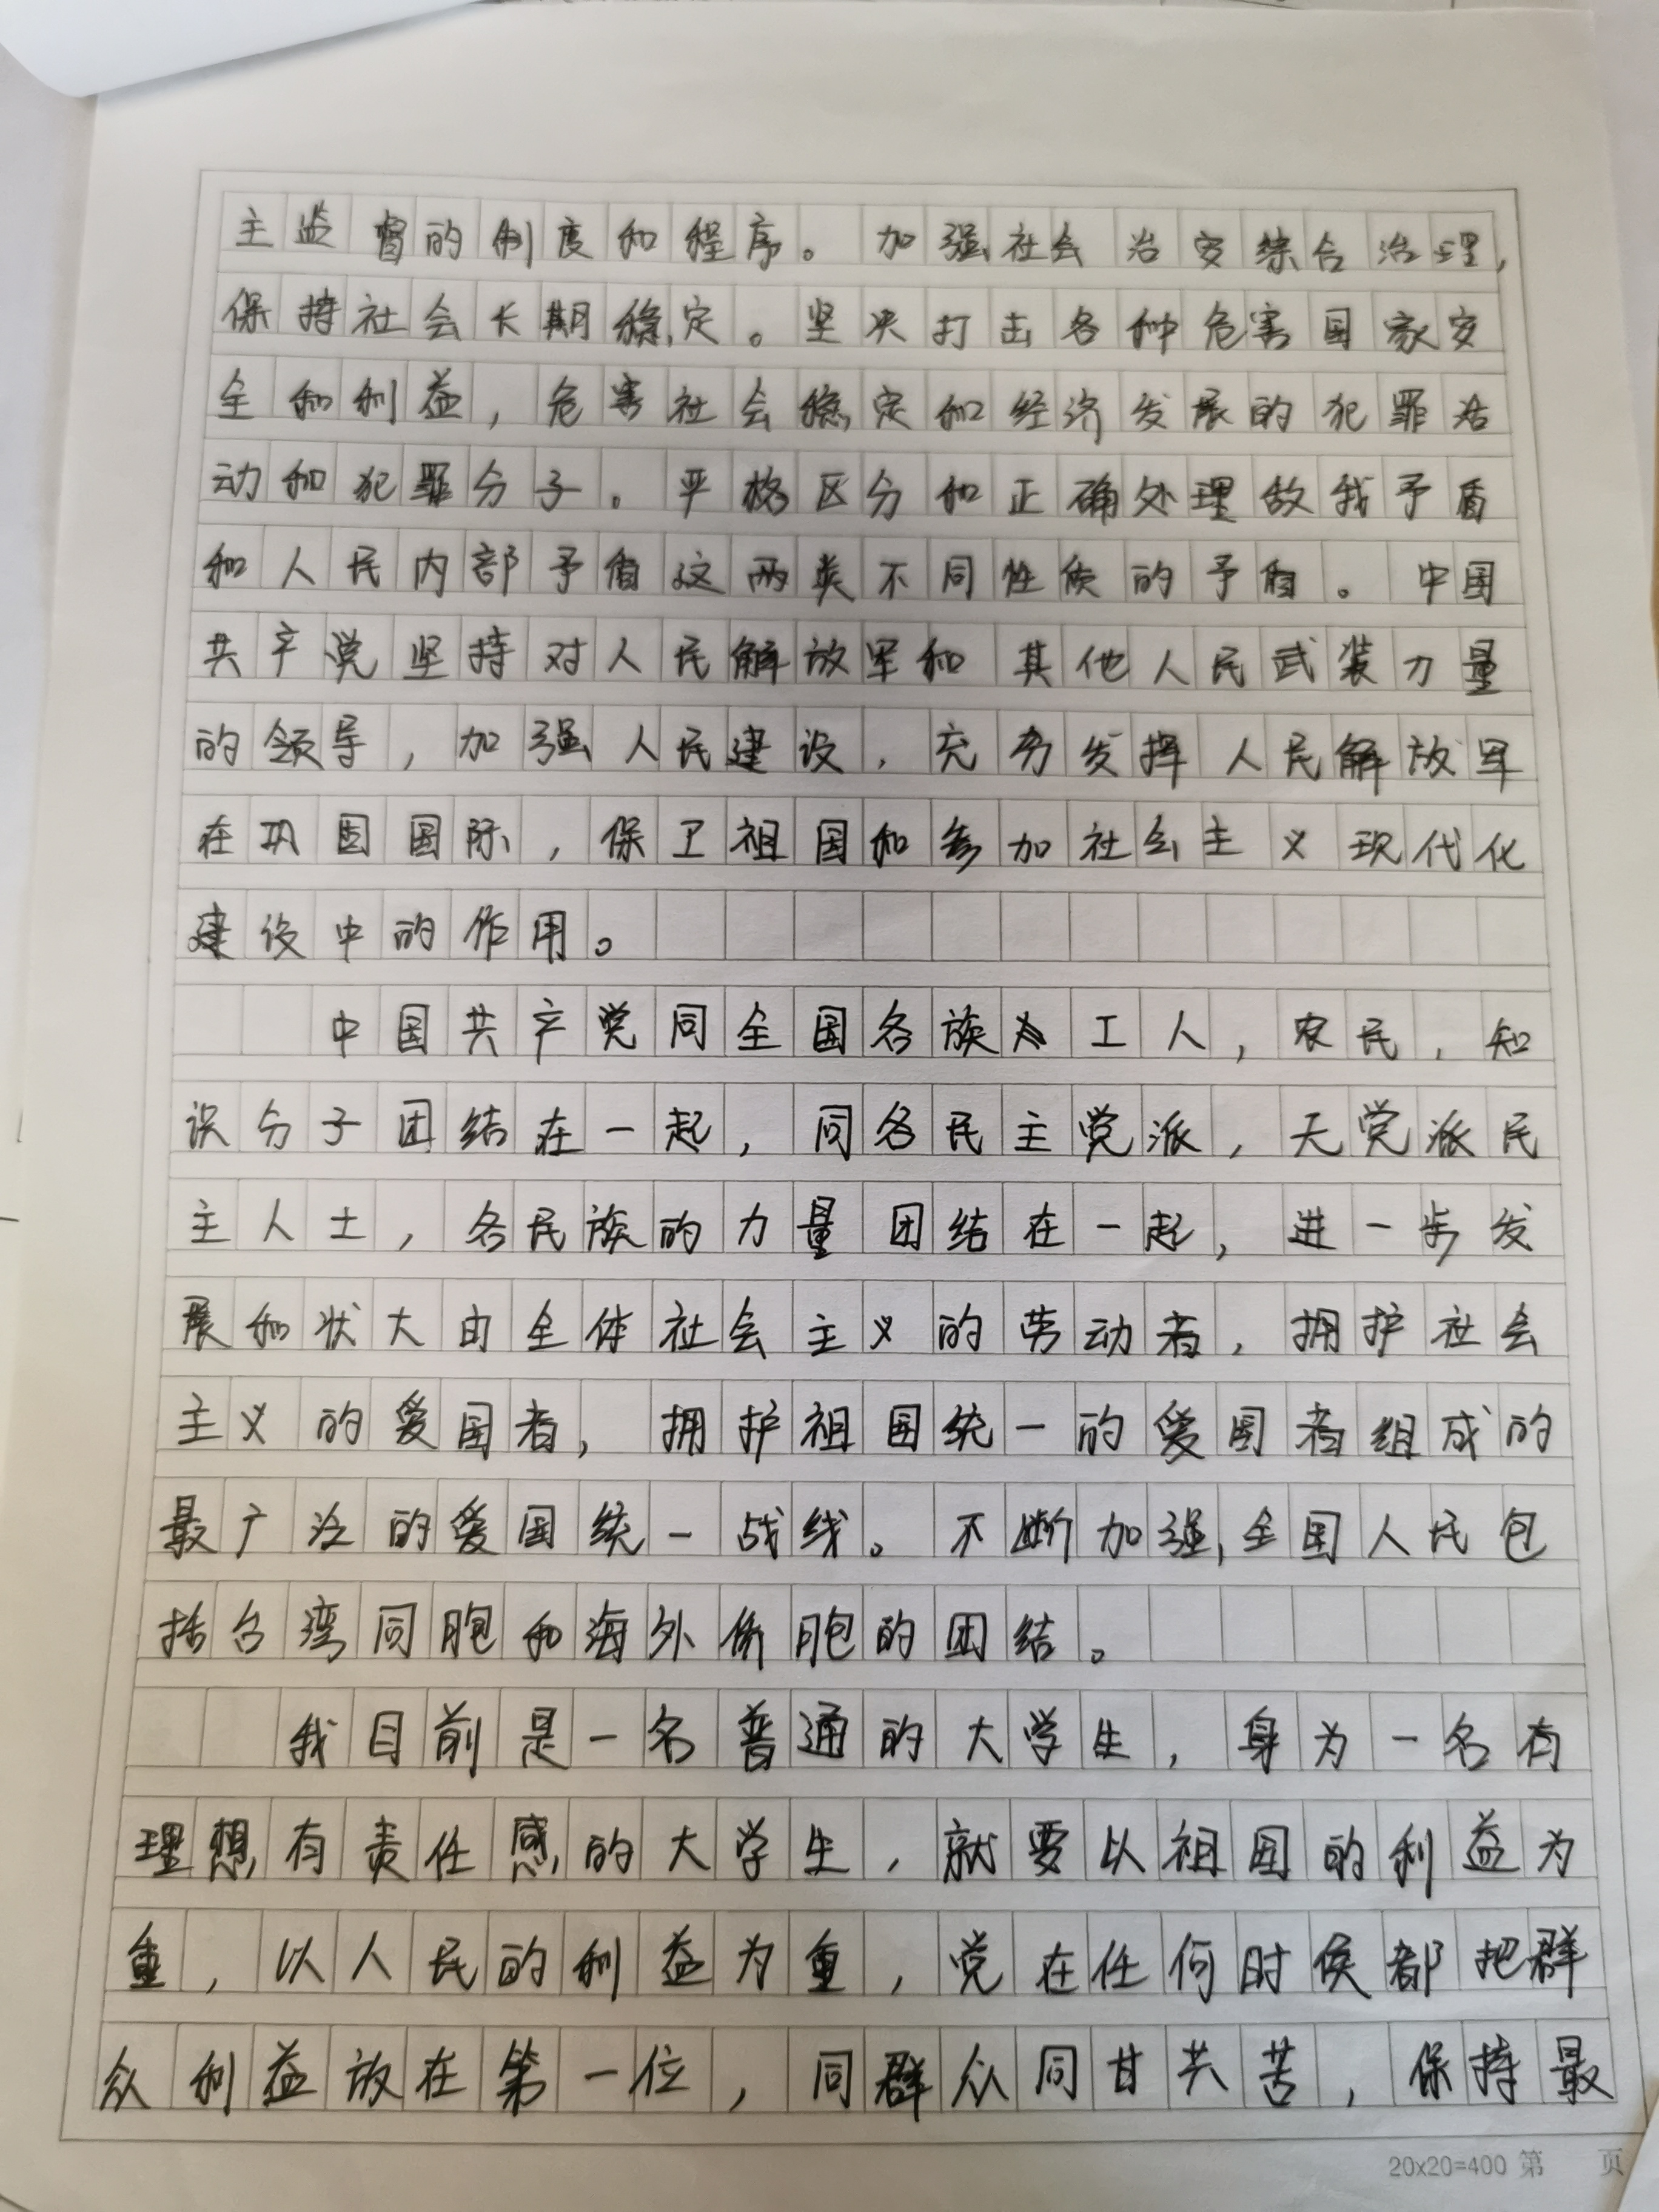 主监督的制度和程序。加强社会治安综合治理,
保持社会长期稳定。坚决打击各种危害国家安
全和利益,危害社会稳定和经济发展的犯罪活
动和犯罪分子。严格区分和正确处理敌我矛盾
和人民内部矛盾这两类不同性质的矛盾。中国
共产党坚持对人民解放军和其他人民武装力量
的领导,加强人民建设,充分发挥人民解放军
在巩固国际,保卫祖国和参加社会主义现代化
建设中的作用。
中国共产党同全国各族工人,农民,知
识分子团结在一起,同各民主党派,无党派民
主人士,各民族的力量团结在一起,进一步发
展和状大由全体社会主义的劳动者,拥护社会
主义的爱国者,拥护祖国统一的爱国者组成的
最广泛的爱国统一战线。不断加强全国人民包
括台湾同胞和海外侨胞的团结。
我目前是一名普通的大学生,身为一名有
理想有责任感的大学生,就要以祖国的利益为
重,以人民的利益为重,党在任何时侯都把群
众利益放在第一位,同群众同甘共苦,保持最
20x20=400 第 页